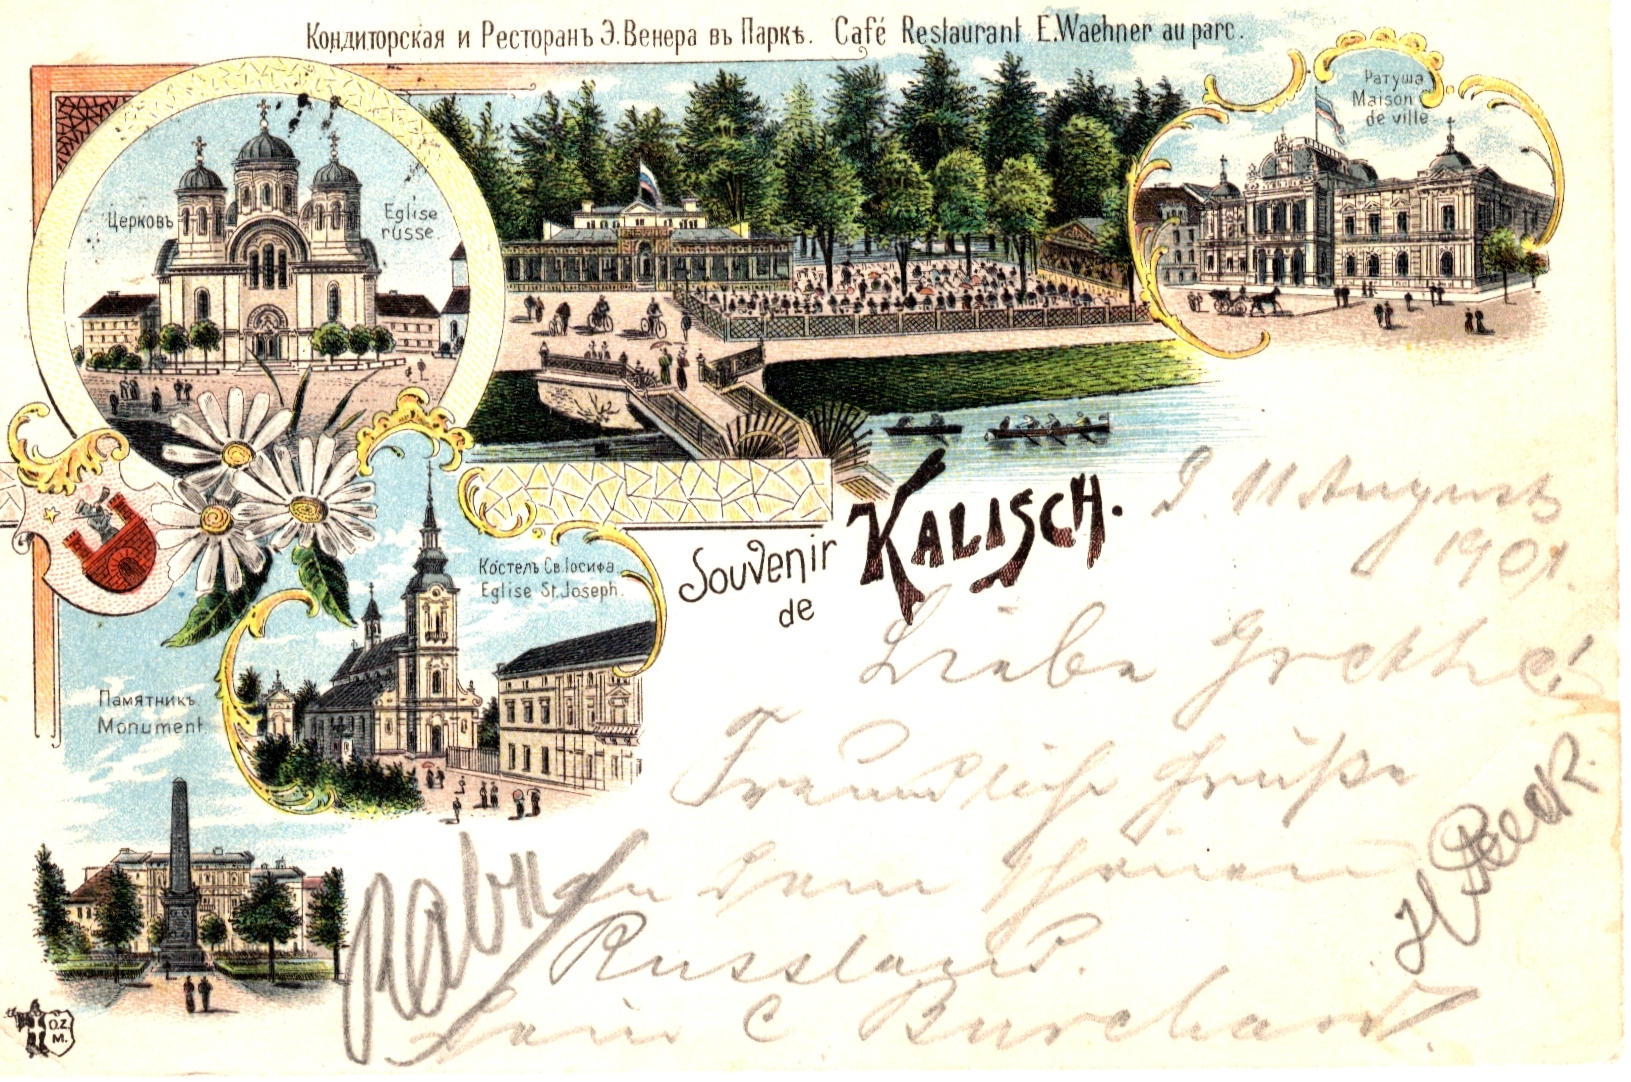 Кондиторская и Ресторанъ Э. Венера въ Паркѣ. Café Restaurant E. Waehner au parc.
Церковъ
Eglise
russe.
Ратуша
Maison
de ville
Костелъ Св. Іосифа
Eglise St. Joseph.
Souvenir
de
KALISCH.
Памятникъ
Monument
O.Z.
M.
D. 11 August
1901.
Liebe Grethe!
Freundliche Grüße
aus dem schönen
Russland.
Dein C Burchard